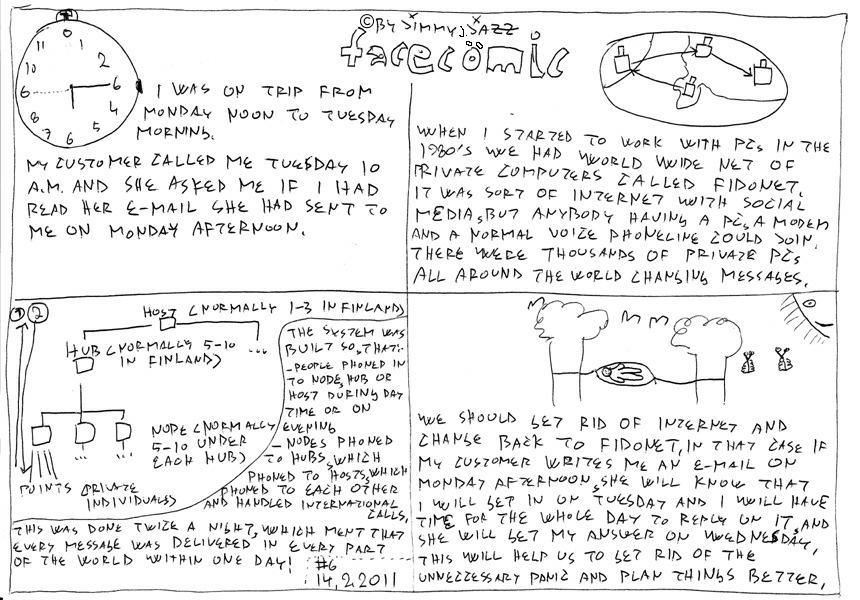 © BY JIMMY JAZZ
facecomic
0
11 1
10 2
9 6
8 4
7 6 5
I WAS ON TRIP FROM
MONDAY NOON TO TUESDAY
MORNING.
MY CUSTOMER CALLED ME TUESDAY 10
A.M. AND SHE ASKED ME IF I HAD
READ HER E-MAIL SHE HAD SENT TO
ME ON MONDAY AFTERNOON.
WHEN I STARTED TO WORK WITH PCs IN THE
1980'S WE HAD WORLD WIDE NET OF
PRIVATE COMPUTERS CALLED FIDONET.
IT WAS SORT OF INTERNET WITH SOCIAL
MEDIA, BUT ANYBODY HAVING A PC, A MODEM
AND A NORMAL VOICE PHONELINE COULD JOIN.
THERE WERE THOUSANDS OF PRIVATE PCs
ALL AROUND THE WORLD CHANGING MESSAGES.
1 2
HOST (NORMALLY 1-3 IN FINLAND)
HUB (NORMALLY 5-10 ...
IN FINLAND)
NODE (NORMALLY
5-10 UNDER
EACH HUB)
... ...
POINTS (PRIVATE
INDIVIDUALS)
THE SYSTEM WAS
BUILT SO, THAT:
- PEOPLE PHONED IN
TO NODE, HUB OR
HOST DURING DAY
TIME OR ON
EVENING
- NODES PHONED
TO HUBS, WHICH
PHONED TO HOSTS, WHICH
PHONED TO EACH OTHER
AND HANDLED INTERNATIONAL
CALLS.
THIS WAS DONE TWICE A NIGHT, WHICH MENT THAT
EVERY MESSAGE WAS DELIVERED IN EVERY PART
OF THE WORLD WITHIN ONE DAY!
#6
14.2.2011
WE SHOULD GET RID OF INTERNET AND
CHANGE BACK TO FIDONET, IN THAT CASE IF
MY CUSTOMER WRITES ME AN E-MAIL ON
MONDAY AFTERNOON, SHE WILL KNOW THAT
I WILL GET IN ON TUESDAY AND I WILL HAVE
TIME FOR THE WHOLE DAY TO REPLY ON IT, AND
SHE WILL GET MY ANSWER ON WEDNESDAY.
THIS WILL HELP US TO GET RID OF THE
UNNECCESSARY PANIC AND PLAN THINGS BETTER.